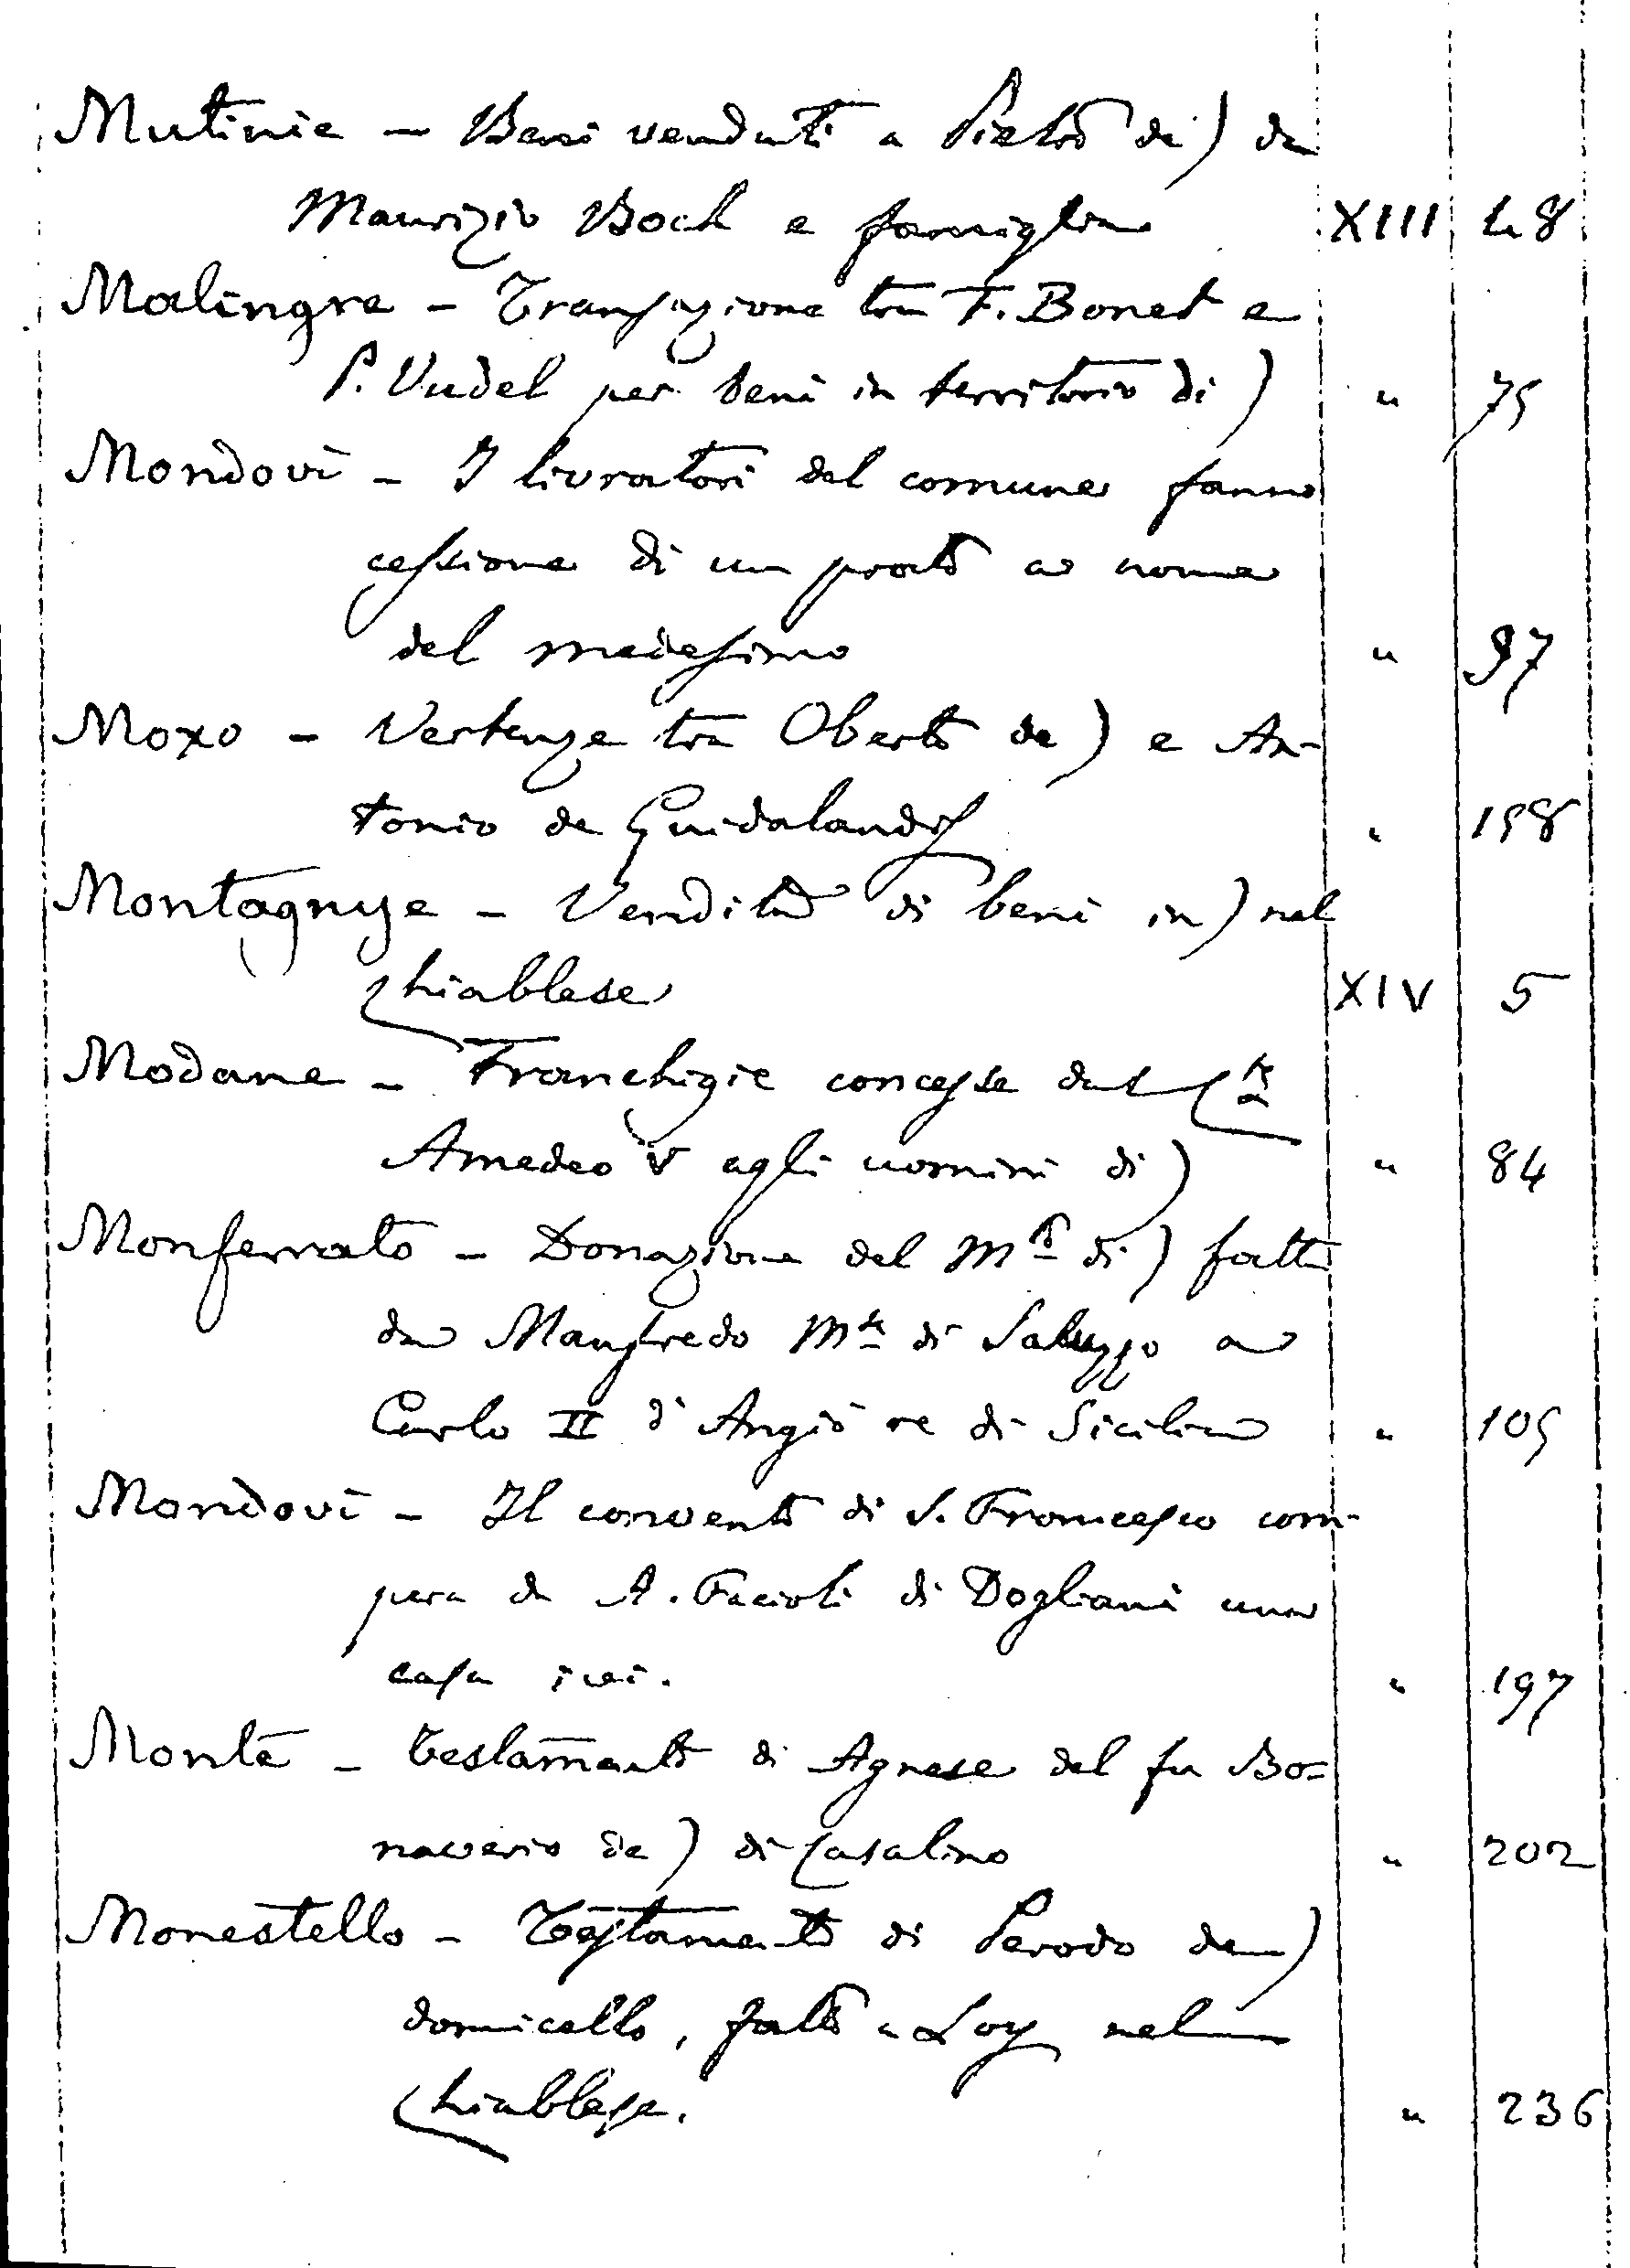 Mutinie - Beni venduti a Pietro di) da
Maurizio Boch e famiglia XIII 48
Malingre - Transazione tra F. Bonet e
P. Vudel per beni in territorio di) " 75
Mondovì - I livratori del comune fanno
cessione di un prato a nome
del medesimo " 97
Moxo - Vertenze tra Oberto de) e An-
tonio de Guidalandis " 158
Montagnye - Vendita di beni in) nel
Chiablese XIV 5
Modane - Franchigie concesse dal Cte
Amedeo V agli uomini di) " 84
Monferrato - Donazione del Mto di) fatta
da Manfredo Mse di Saluzzo a
Carlo II d'Angiò re di Sicilia " 105
Mondovì - Il convento di S. Francesco com-
pera da A. Facioli di Dogliani una
casa ivi. " 197
Monte - Testamento di Agnese del fu Bo=
naverio de) di Casalino " 202
Monestello - Testamento di Perodo de)
domicello, fatto a Loy nel
Chiablese. " 236